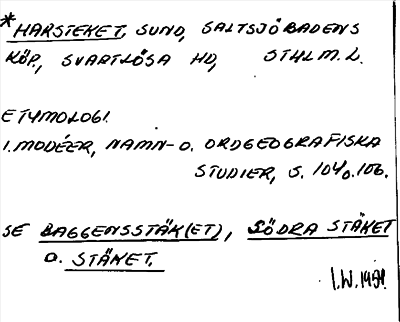 *HARSTEKET, SUND, SALTSJÖBADENS
KÖP., SVARTLÖSA HD, STHLM.L.
ETYMOLOGI.
I. MODÉER, NAMN- O. ORDGEOGRAFISKA
STUDIER, S. 104 O. 106.
SE BAGGENSSTÄK(ET), SÖDRA STÄKET
O. STÄKET.
I.W. 1959.